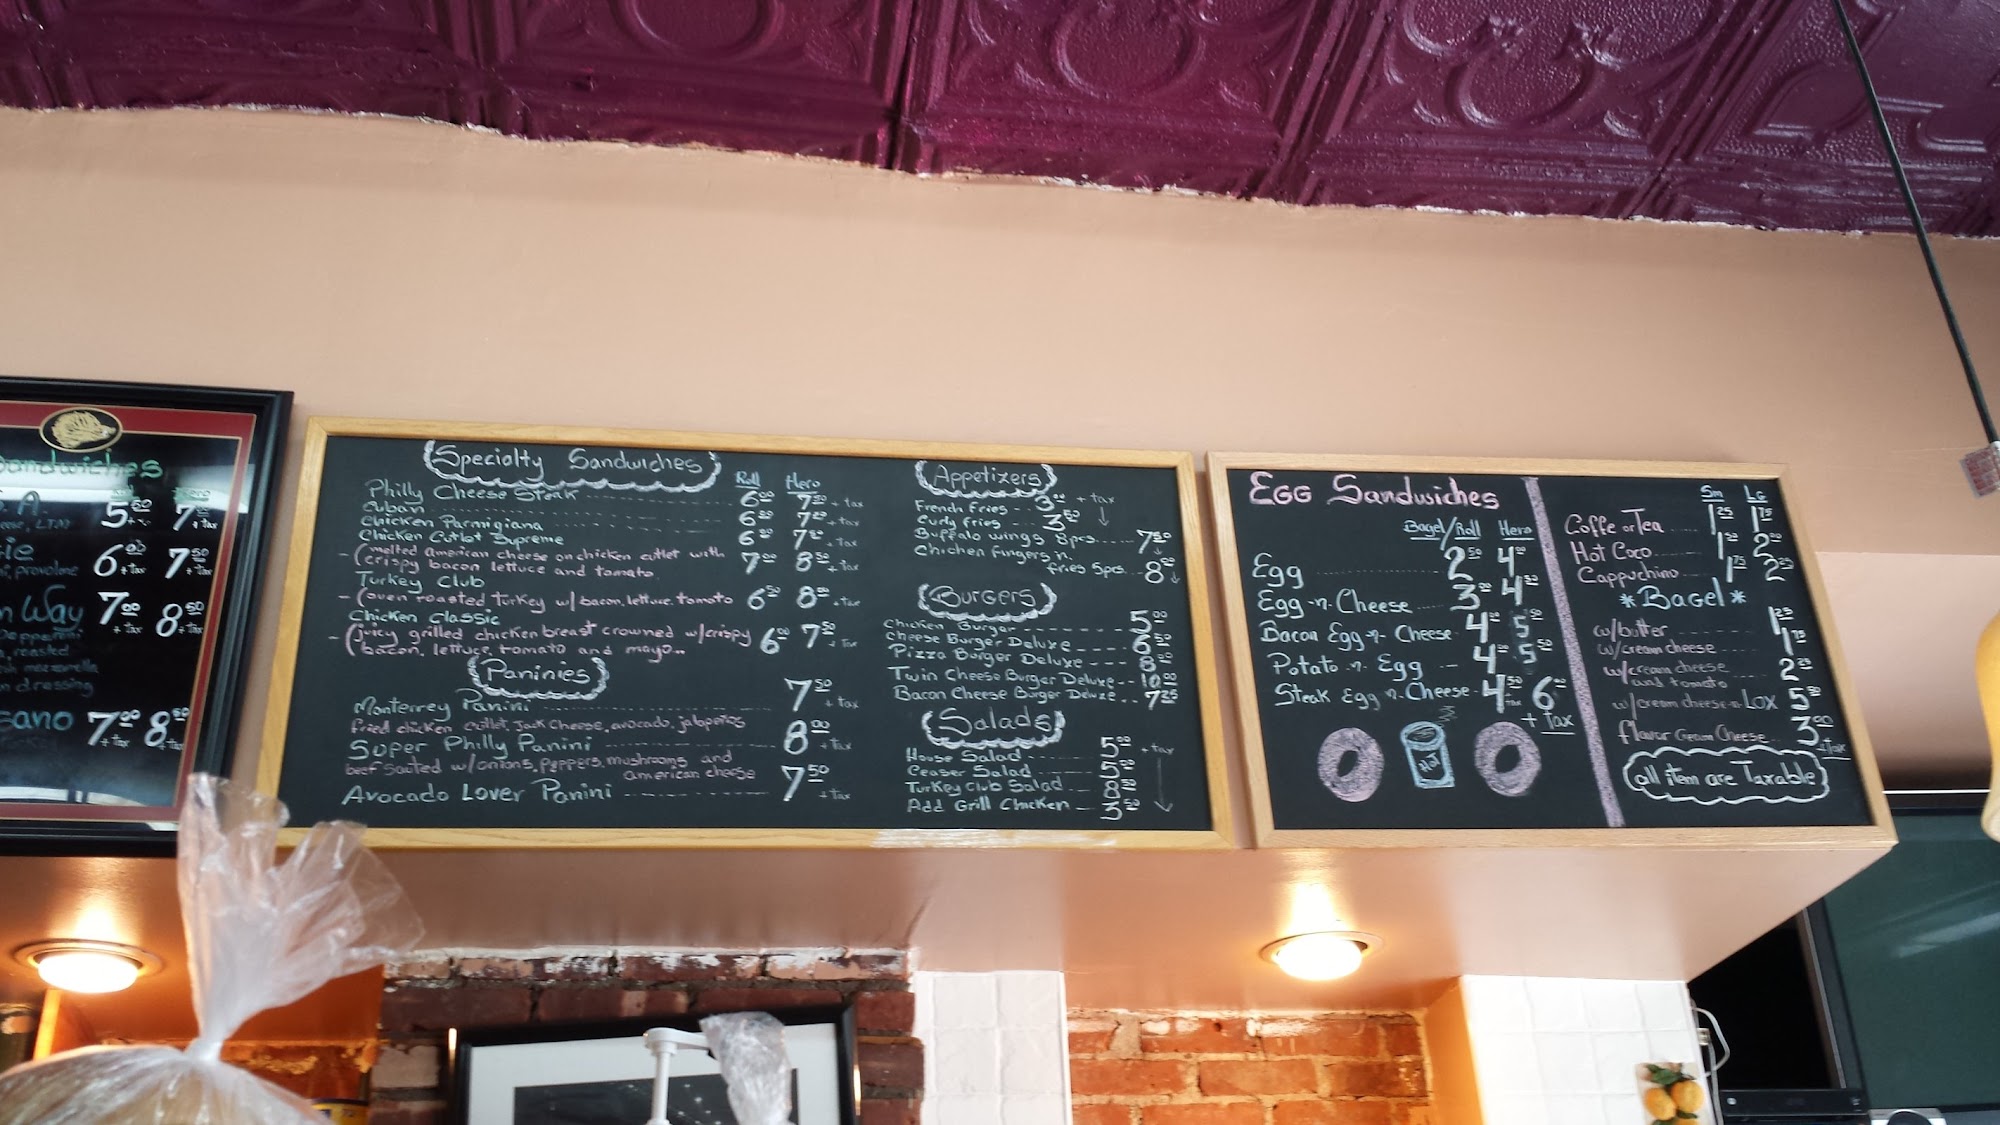 Sandwiches
5.50 7.00
+ tax
6.00 7.50
+ tax + tax
provolone
Way
7.00 8.50
+ tax + tax
roasted
mozzarella
dressing
7.00 8.50
+ tax + tax
Specialty Sandwiches
Roll Hero
Philly Cheese Steak 6.00 7.50 + tax
Cuban 6.00 + tax
Chicken Parmigiana 6.00 + tax
Chicken Cutlet Supreme 7.00 8.50 + tax
- (melted american cheese on chicken cutlet with
(crispy bacon lettuce and tomato
Turkey Club 6.50 8.00 + tax
- (oven roasted Turkey w/ bacon, lettuce, tomato
Chicken Classic 6.00 7.50 + tax
- (juicy grilled chicken breast crowned w/crispy
(bacon, lettuce, tomato and mayo..
Paninies
Monterrey Panini 7.50 + tax
fried chicken cutlet, Jack cheese, avocado, jalapeños
Super Philly Panini 8.00 + tax
beef sauted w/onions, peppers, mushrooms and
american cheese
Avocado Lover Panini 7.50 + tax
Appetizers
French Fries 3.00 + tax
Curly fries 3.50
Buffalo wings 8pcs 7.50
Chichen fungers n.
fries 5pcs 8.00
Burgers
Chicken Burger 5.00
Cheese Burger Deluxe 6.50
Pizza Burger Deluxe 8.00
Twin Cheese Burger Deluxe 10.00
Bacon Cheese Burger Deluxe 7.25
Salads
House Salad 5.00 + tax
Ceaser Salad 5.00
Turkey Club Salad 8.00
Add Grill Chicken 3.50
Egg Sandwiches
Bagel/Roll Hero
Egg 2.50 4.00
Egg-n-Cheese 3.00 4.50
Bacon Egg-n-Cheese 4.00 5.50
Potato-n-Egg 4.00 5.50
Steak Egg-n-Cheese 4.50 6.00
+ tax + tax
Sm Lg
Coffe or Tea 1.25 1.75
Hot Coco 1.50 2.00
Cappuchino 1.75 2.25
*Bagel*
w/butter 1.25
w/cream cheese 1.75
w/cream cheese
and tomato 2.25
w/cream cheese-n-Lox 5.50
flavor Cream Cheese 3.00
+ tax
all item are Taxable
Hot